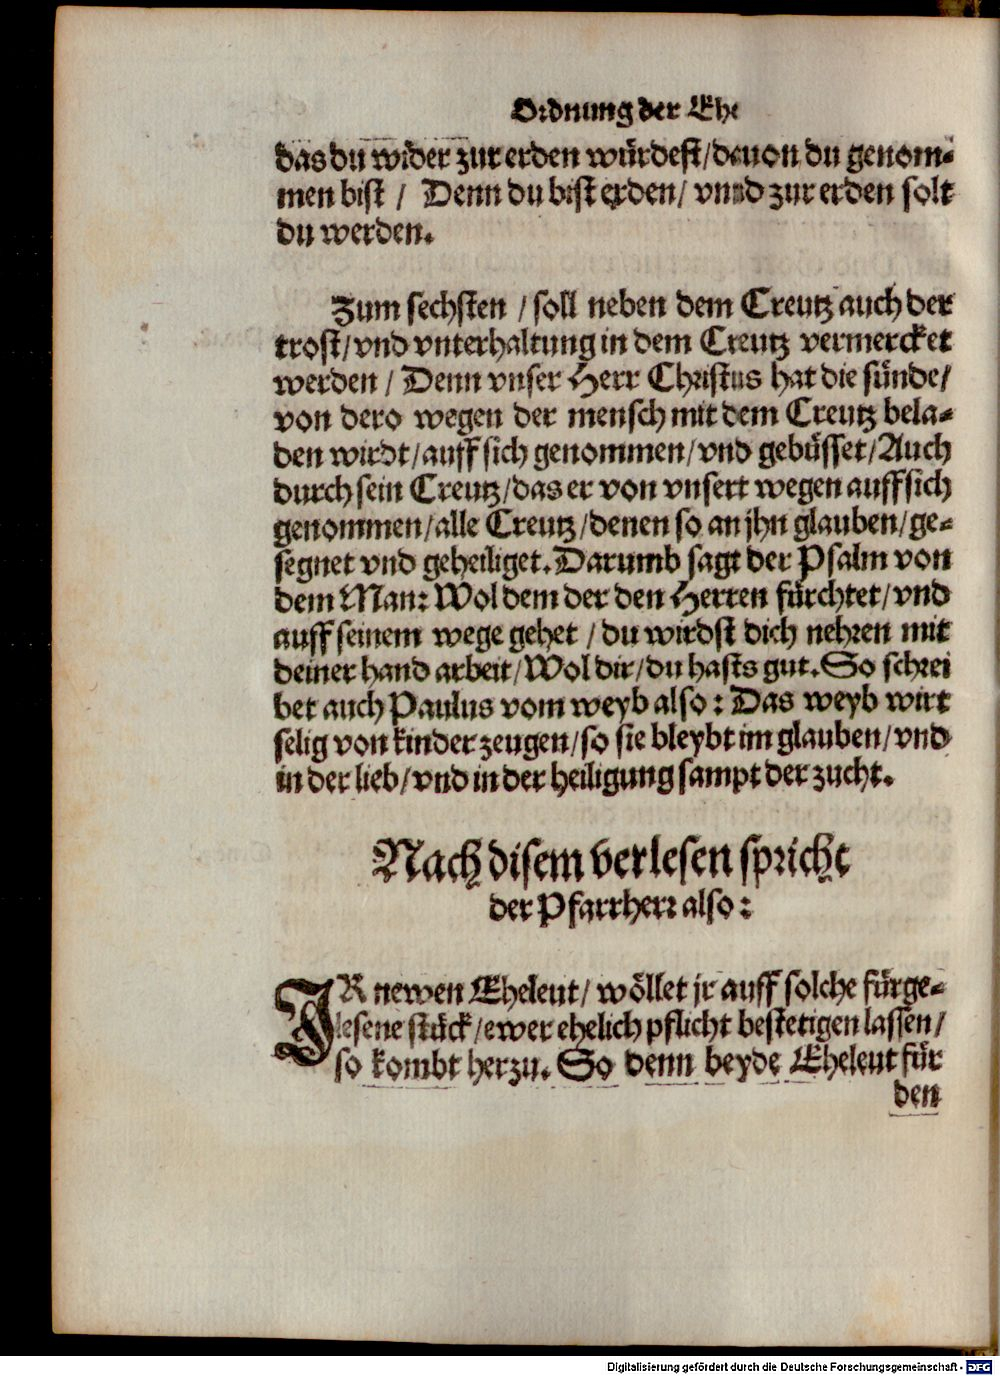 Ordnung der Ehe
das du wider zur erden würdest/dauon du genom-
men bist / Denn du bist erden/ vnnd zur erden solt
du werden.
Zum sechsten / soll neben dem Creutz auch der
trost/vnd vnterhaltung in dem Creutz vermercket
werden / Denn vnser Herr Christus hat die sünde/
von dero wegen der mensch mit dem Creutz bela-
den wirdt/auff sich genommen/vnd gebüsset/Auch
durch sein Creutz/das er von vnsert wegen auff sich
genommen/alle Creutz/denen so an jhn glauben/ge-
segnet vnd geheiliget. Darumb sagt der Psalm von
dem Man: Wol dem der den Herren fürchtet/vnd
auff seinem wege gehet / du wirdst dich nehren mit
deiner hand arbeit/Wol dir/du hasts gut. So schrei
bet auch Paulus vom weyb also: Das weyb wirt
selig von kinder zeugen/so sie bleybt im glauben/vnd
in der lieb/vnd in der heiligung sampt der zucht.
Nach disem verlesen spricht
der Pfarrherr also:
JR newen Eheleut/ wöllet jr auff solche fürge-
lesene stück/ewer ehelich pflicht bestetigen lassen/
so kombt herzu. So denn beyde Eheleut für
den
Digitalisierung gefördert durch die Deutsche Forschungsgemeinschaft - DFG